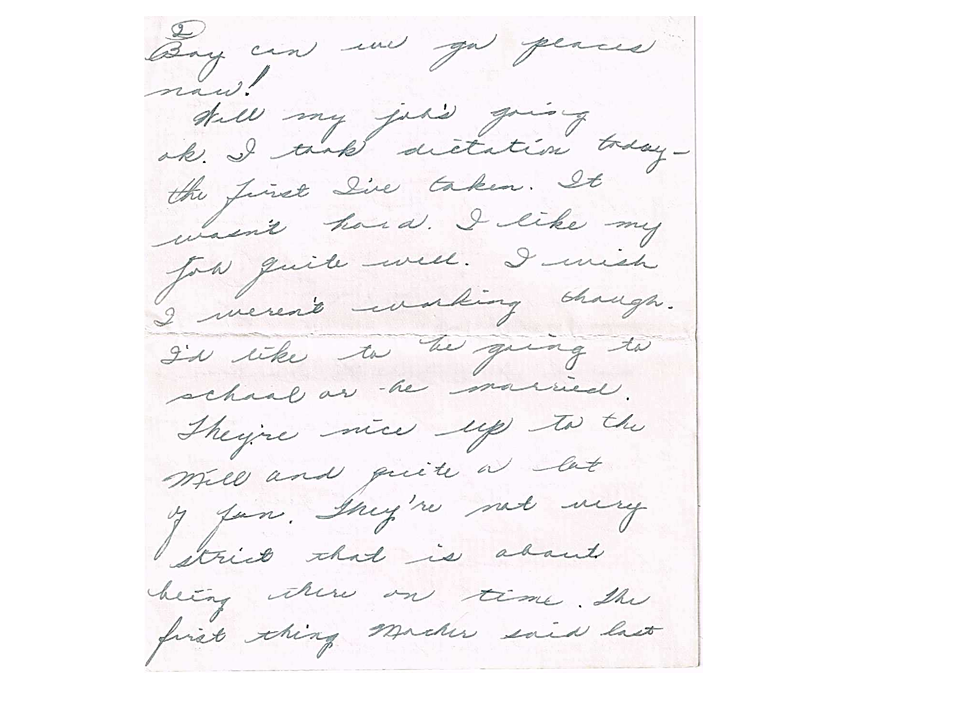 2
Boy can we go places
now!
Well my job's going
ok. I took dictation today-
the first I've taken. It
wasn't hard. I like my
job quite well. I wish
I weren't working though.
I'd like to be going to
school or be married.
They're nice up to the
Mill and quite a lot
of fun. They're not very
strict that is about
being there on time. The
first thing Mother said last